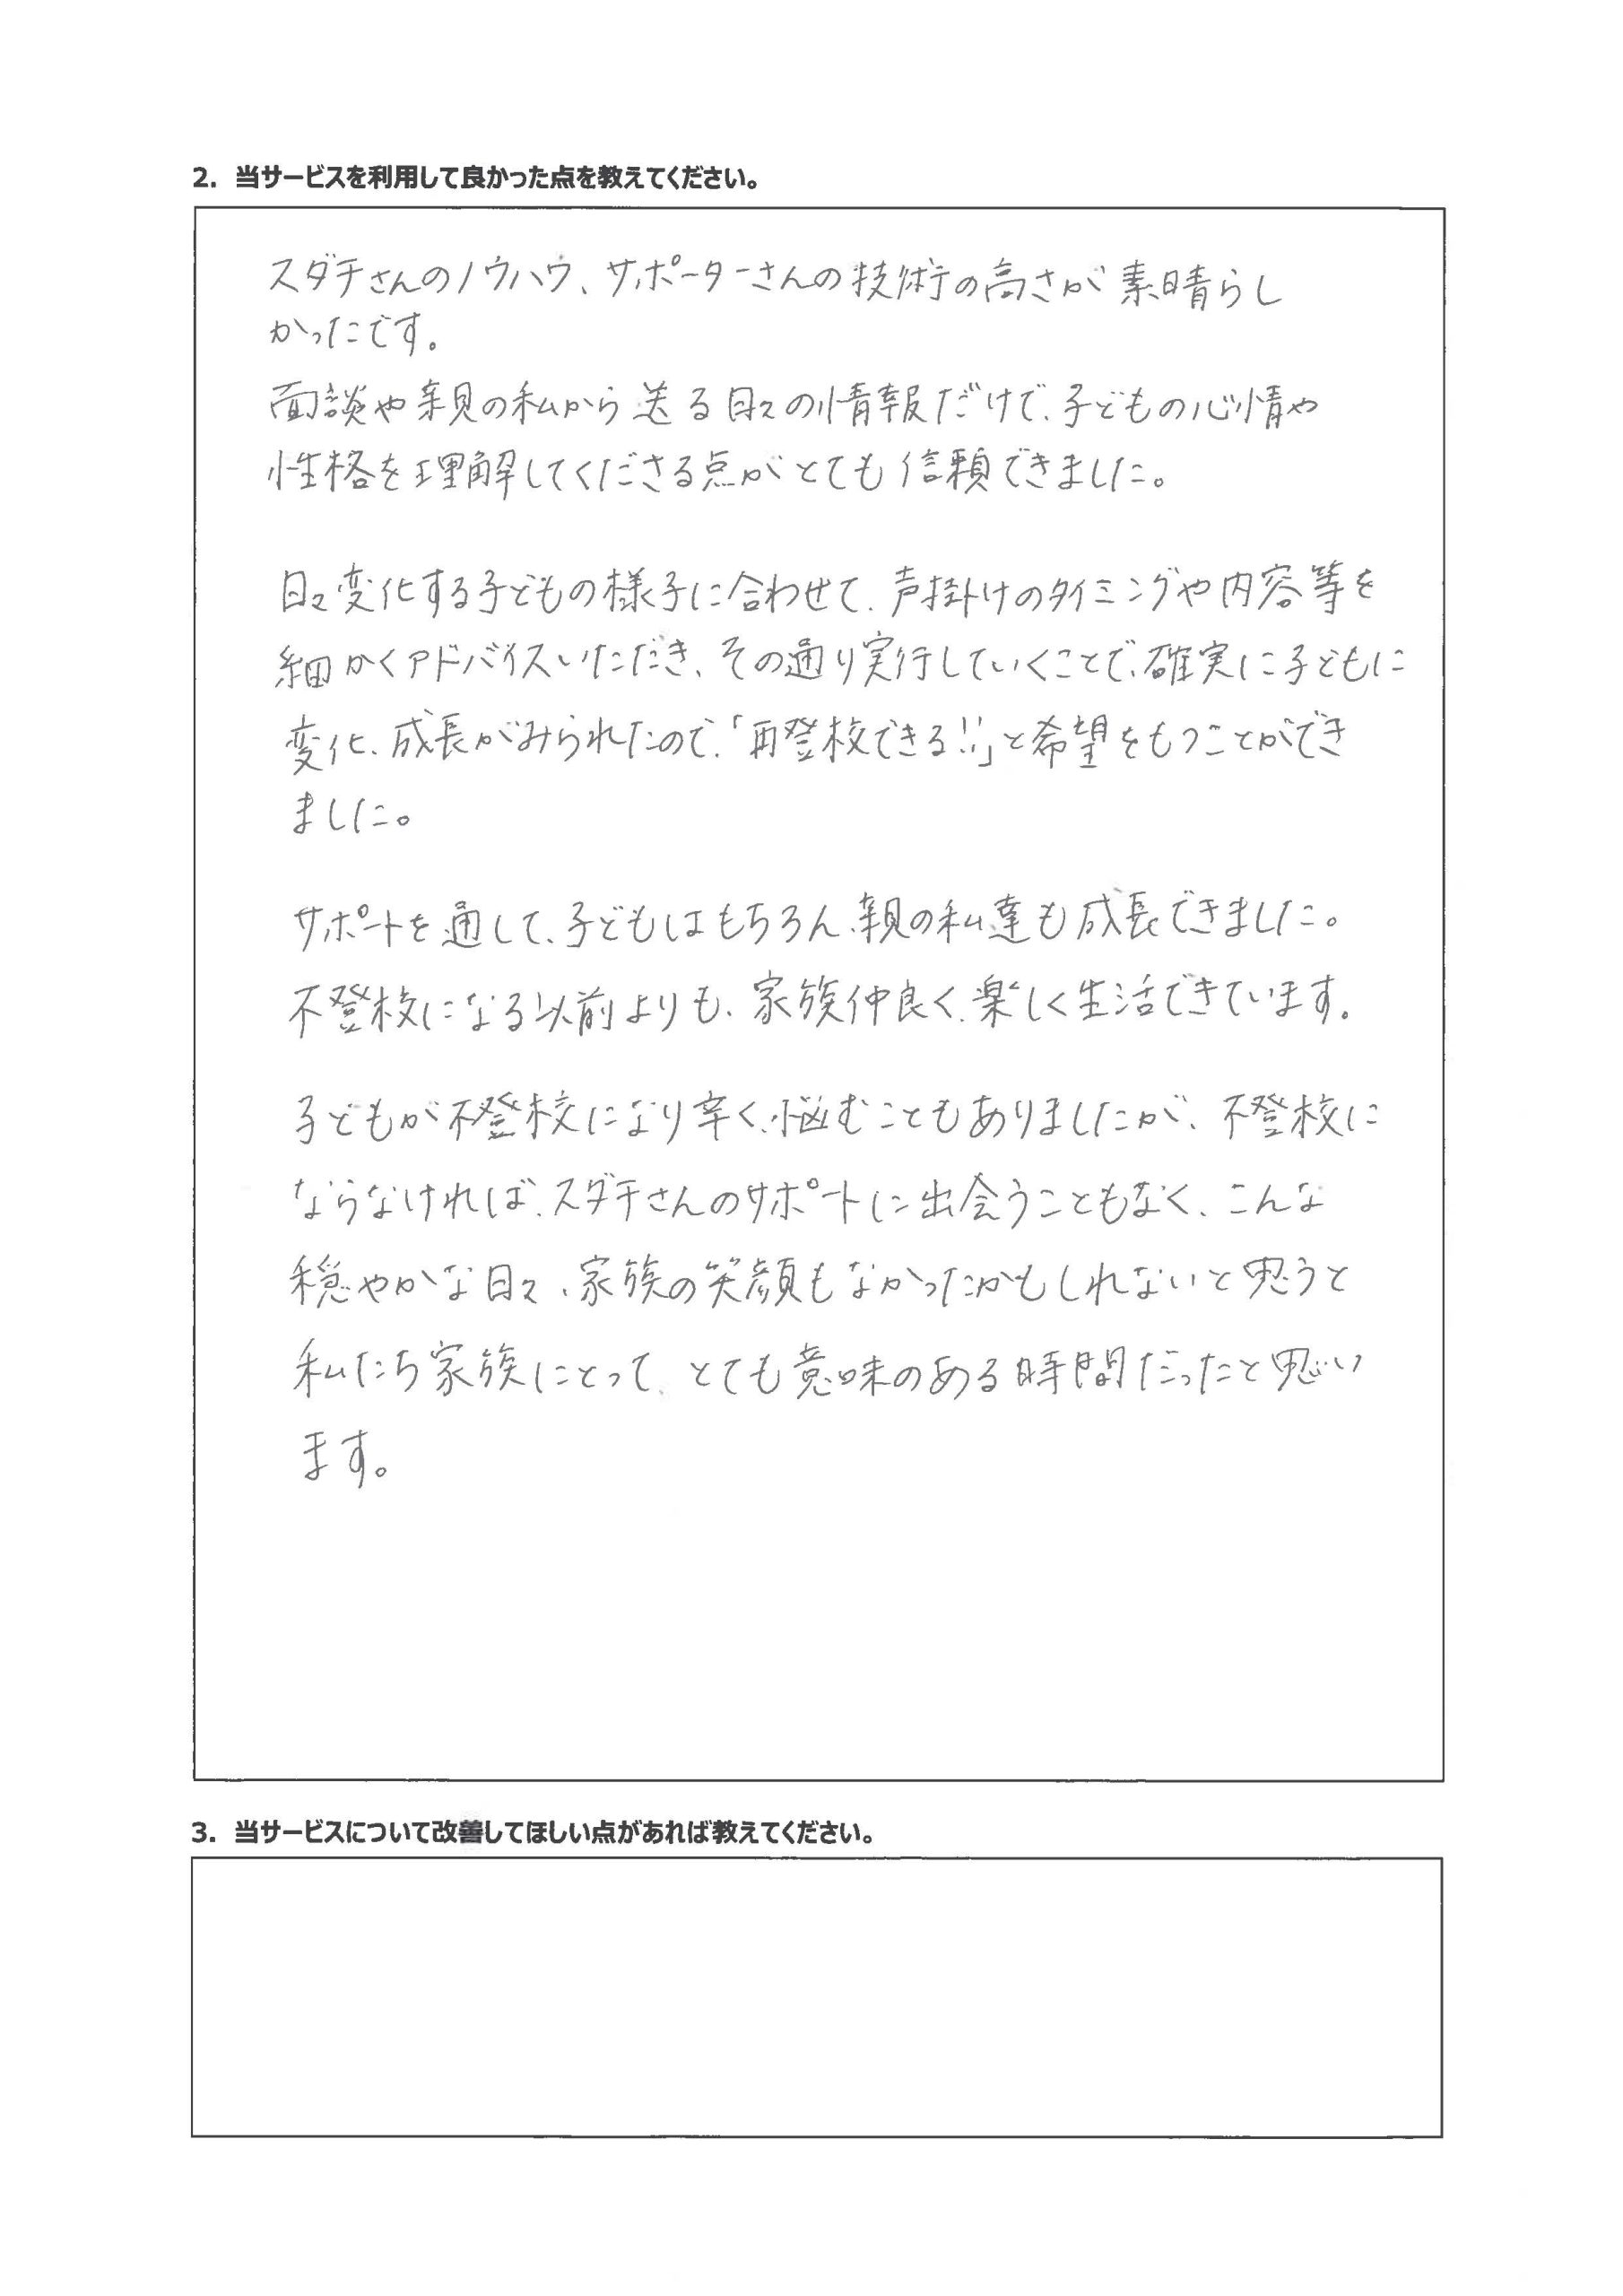 2. 当サービスを利用して良かった点を教えてください。
スダチさんのノウハウ、サポーターさんの技術の高さが素晴らし
かったです。
面談や親の私から送る日々の情報だけで、子どもの心情や
性格を理解してくださる点がとても信頼できました。
日々変化する子どもの様子に合わせて、声掛けのタイミングや内容等を
細かくアドバイスいただき、その通り実行していくことで、確実に子どもに
変化、成長がみられたので、「再登校できる!!」と希望をもつことができ
ました。
サポートを通して、子どもはもちろん、親の私達も成長できました。
不登校になる以前よりも、家族仲良く、楽しく生活できています。
子どもが不登校になり辛く、悩むこともありましたが、不登校に
ならなければ、スダチさんのサポートに出会うこともなく、こんな
穏やかな日々、家族の笑顔もなかったかもしれないと思うと
私たち家族にとって、とても意味のある時間だったと思い
ます。
3. 当サービスについて改善してほしい点があれば教えてください。